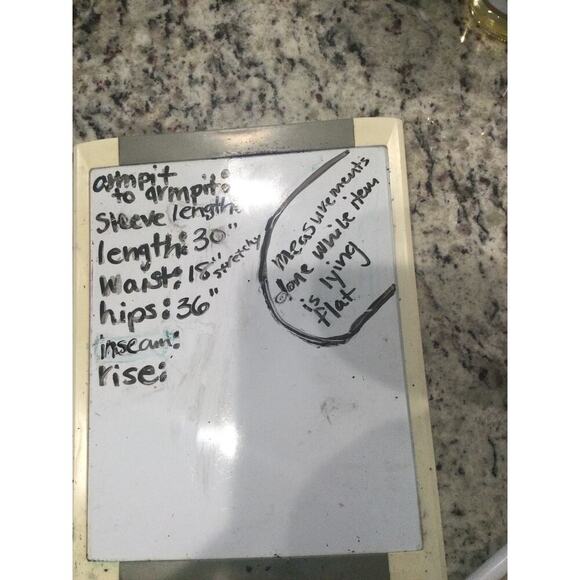 armpit
to armpit:
sleeve length:
length: 30"
waist: 18" stretchy
hips: 36"
inseam:
rise:
measurements
done while item
is lying
flat